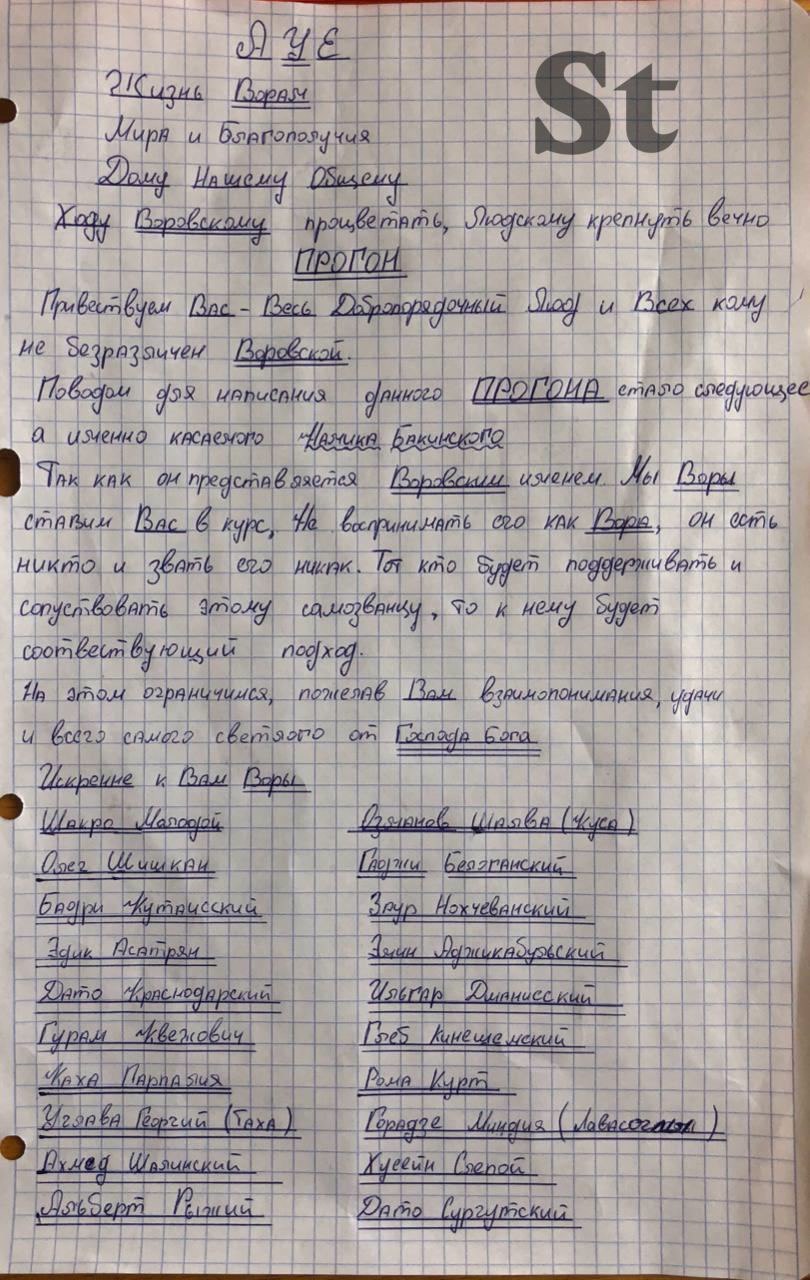 АУЕ
St
Жизнь Ворам
Мира и Благополучия
Дому Нашему Общему
Ходу Воровскому процветать, Людскому крепнуть вечно
ПРОГОН
Приветствуем Вас - Весь Добропорядочный Люд и Всех кому
не безразличен Воровской.
Поводом для написания данного ПРОГОНА стало следующее
а именно касаемого Намика Бакинского
Так как он представляется Воровским именем. Мы Воры
ставим Вас в курс, Не воспринимать его как Вора, он есть
никто и звать его никак. Тот кто будет поддерживать и
сопуствовать этому самозванцу, то к нему будет
соотвествующий подход.
На этом ограничимся, пожелав Вам взаимопонимания, удачи
и всего самого светлого от Господа Бога
Искренне к Вам Воры
Шакро Молодой Озманов Шалва (Куса)
Олег Шишкан Гаджи Белзганский
Бадри Кутаисский Заур Нохчеванский
Эдик Асатрян Эмин Аджикабульский
Дато Краснодарский Ильгар Дманисский
Гурам Квежович Глеб Кинешемский
Каха Парпалия Рома Курт
Углава Георгий (Таха) Горадзе Миндия (Лавасоглы)
Ахмед Шалинский Хусейн Слепой
Альберт Рыжий Дато Сургутский